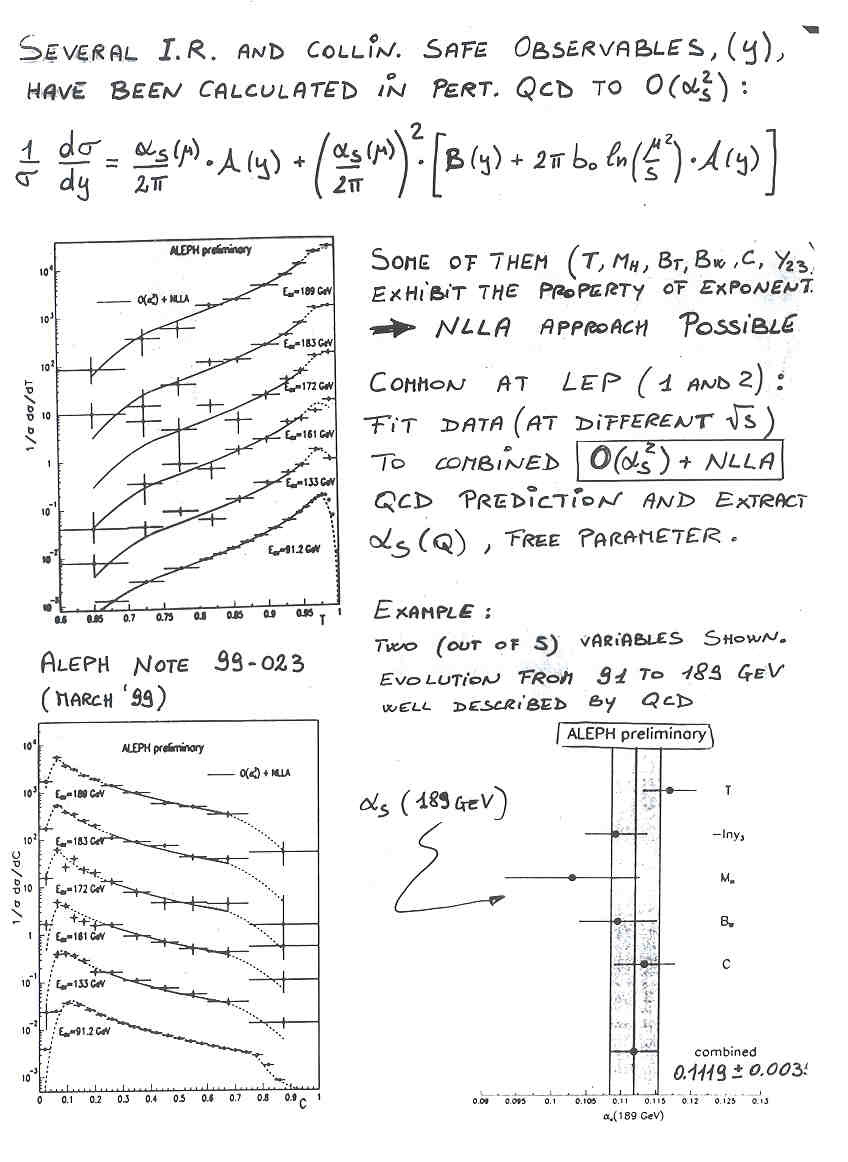 SEVERAL I.R. AND COLLIN. SAFE OBSERVABLES, (y),
HAVE BEEN CALCULATED IN PERT. QCD TO O(αs²) :
1/σ dσ/dy = αs(μ)/2π · A(y) + (αs(μ)/2π)² · [B(y) + 2π b₀ ln(μ²/s) · A(y)]
ALEPH preliminary
O(αs²) + NLLA
Ecm=189 GeV
Ecm=183 GeV
Ecm=172 GeV
Ecm=161 GeV
Ecm=133 GeV
Ecm=91.2 GeV
1/σ dσ/dT
10⁴
10³
10²
10
1
10⁻¹
10⁻²
10⁻³
0.6 0.65 0.7 0.75 0.8 0.85 0.9 0.95 1
T
SOME OF THEM (T, MH, BT, BW, C, Y23,
EXHIBIT THE PROPERTY OF EXPONENT.
➡ NLLA APPROACH POSSIBLE
COMMON AT LEP (1 AND 2) :
FIT DATA (AT DIFFERENT √s)
TO COMBINED O(αs²) + NLLA
QCD PREDICTION AND EXTRACT
αs(Q), FREE PARAMETER.
EXAMPLE :
TWO (OUT OF 5) VARIABLES SHOWN.
EVOLUTION FROM 91 TO 189 GEV
WELL DESCRIBED BY QCD
ALEPH NOTE 99-023
(MARCH '99)
ALEPH preliminary
O(αs²) + NLLA
Ecm=189 GeV
Ecm=183 GeV
Ecm=172 GeV
Ecm=161 GeV
Ecm=133 GeV
Ecm=91.2 GeV
1/σ dσ/dC
10⁴
10³
10²
10
1
10⁻¹
10⁻²
10⁻³
0 0.1 0.2 0.3 0.4 0.5 0.6 0.7 0.8 0.9 1
C
αs (189 GeV)
ALEPH preliminary
T
-lny₃
MH
BW
C
combined
0.1119 ± 0.003
0.09 0.095 0.1 0.105 0.11 0.115 0.12 0.125 0.13
αs(189 GeV)